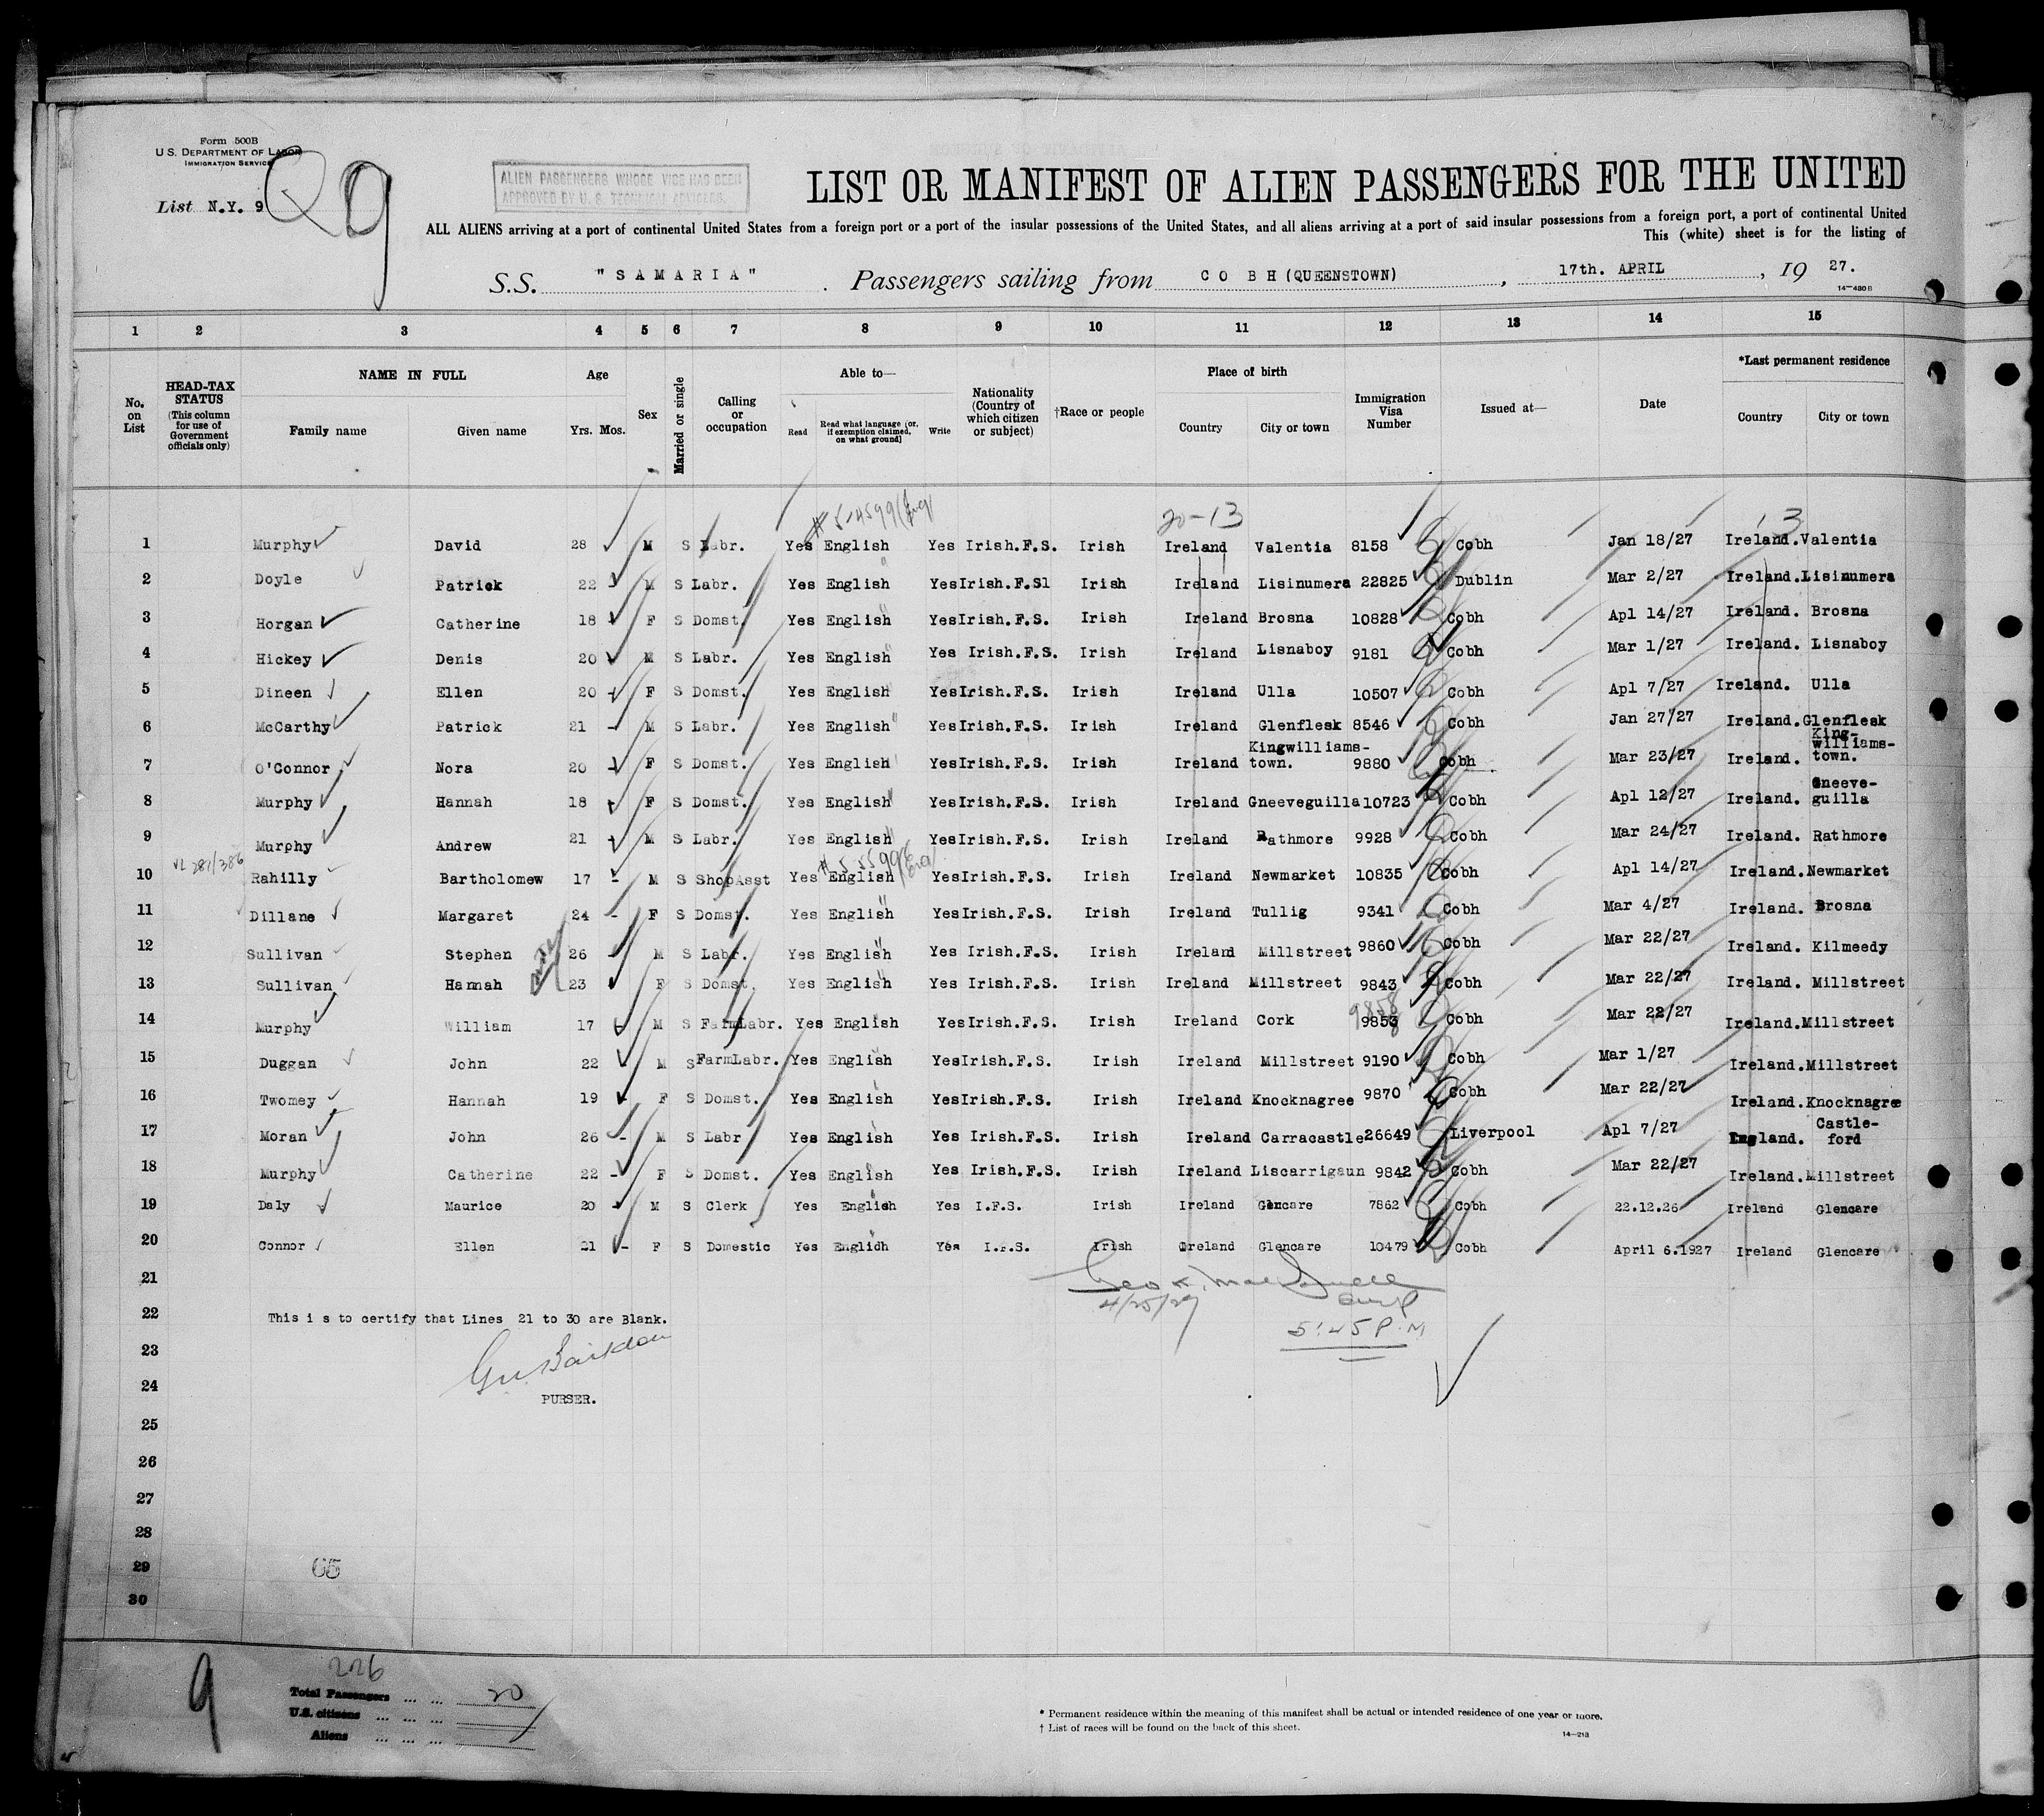 Form 500B
U.S. DEPARTMENT OF LABOR
IMMIGRATION SERVICE
List N.Y. 9
9
ALIEN PASSENGERS WHOSE VISE HAS BEEN
APPROVED BY U. S. TECHNICAL ADVISERS.
LIST OR MANIFEST OF ALIEN PASSENGERS FOR THE UNITED
ALL ALIENS arriving at a port of continental United States from a foreign port or a port of the insular possessions of the United States, and all aliens arriving at a port of said insular possessions from a foreign port, a port of continental United
This (white) sheet is for the listing of
S.S. "SAMARIA" . Passengers sailing from COBH (QUEENSTOWN) , 17th. APRIL , 19 27.
14-480 B
1 2 3 4 5 6 7 8 9 10 11 12 13 14 15
No. on List
HEAD-TAX STATUS (This column for use of Government officials only)
NAME IN FULL Family name Given name
Age Yrs. Mos.
Sex
Married or single
Calling or occupation
Able to— Read Read what language [or, if exemption claimed, on what ground] Write
Nationality (Country of which citizen or subject)
†Race or people
Place of birth Country City or town
Immigration Visa Number
Issued at—
Date
*Last permanent residence Country City or town
20-13 13
1 Murphy David 28 M S Labr. Yes English Yes Irish.F.S. Irish Ireland Valentia 8158 Cobh Jan 18/27 Ireland. Valentia
2 Doyle Patrick 22 M S Labr. Yes English Yes Irish.F.Sl Irish Ireland Lisinumera 22825 Dublin Mar 2/27 Ireland. Lisinumera
3 Horgan Catherine 18 F S Domst. Yes English Yes Irish.F.S. Irish Ireland Brosna 10828 Cobh Apl 14/27 Ireland. Brosna
4 Hickey Denis 20 M S Labr. Yes English Yes Irish.F.S. Irish Ireland Lisnaboy 9181 Cobh Mar 1/27 Ireland. Lisnaboy
5 Dineen Ellen 20 - F S Domst. Yes English Yes Irish.F.S. Irish Ireland Ulla 10507 Cobh Apl 7/27 Ireland. Ulla
6 McCarthy Patrick 21 - M S Labr. Yes English Yes Irish.F.S. Irish Ireland Glenflesk 8546 Cobh Jan 27/27 Ireland. Glenflesk
7 O'Connor Nora 20 - F S Domst. Yes English Yes Irish.F.S. Irish Ireland Kingwilliams-town. 9880 Cobh Mar 23/27 Ireland. King-williams-town.
8 Murphy Hannah 18 - F S Domst. Yes English Yes Irish.F.S. Irish Ireland Gneeveguilla 10723 Cobh Apl 12/27 Ireland. Gneeve-guilla
9 Murphy Andrew 21 - M S Labr. Yes English Yes Irish.F.S. Irish Ireland Rathmore 9928 Cobh Mar 24/27 Ireland. Rathmore
10 Rahilly Bartholomew 17 - M S ShopAsst Yes English Yes Irish.F.S. Irish Ireland Newmarket 10835 Cobh Apl 14/27 Ireland. Newmarket
11 Dillane Margaret 24 - F S Domst. Yes English Yes Irish.F.S. Irish Ireland Tullig 9341 Cobh Mar 4/27 Ireland. Brosna
12 Sullivan Stephen 26 M S Labr. Yes English Yes Irish.F.S. Irish Ireland Millstreet 9860 Cobh Mar 22/27 Ireland. Kilmeedy
13 Sullivan Hannah 23 F S Domst. Yes English Yes Irish.F.S. Irish Ireland Millstreet 9843 Cobh Mar 22/27 Ireland. Millstreet
14 Murphy William 17 - M S FarmLabr. Yes English Yes Irish.F.S. Irish Ireland Cork 9858 Cobh Mar 22/27 Ireland. Millstreet
15 Duggan John 22 M S FarmLabr. Yes English Yes Irish.F.S. Irish Ireland Millstreet 9190 Cobh Mar 1/27 Ireland. Millstreet
16 Twomey Hannah 19 - F S Domst. Yes English Yes Irish.F.S. Irish Ireland Knocknagree 9870 Cobh Mar 22/27 Ireland. Knocknagree
17 Moran John 26 - M S Labr Yes English Yes Irish.F.S. Irish Ireland Carracastle 26649 Liverpool Apl 7/27 England. Castle-ford
18 Murphy Catherine 22 - F S Domst. Yes English Yes Irish.F.S. Irish Ireland Liscarrigaun 9842 Cobh Mar 22/27 Ireland. Millstreet
19 Daly Maurice 20 - M S Clerk Yes English Yes I.F.S. Irish Ireland Glencare 7862 Cobh 22.12.26 Ireland Glencare
20 Connor Ellen 21 - F S Domestic Yes Englidh Yes I.F.S. Irish Oreland Glencare 10479 Cobh April 6.1927 Ireland Glencare
21
4/25/27
5:45 P.M
22 This i s to certify that Lines 21 to 30 are Blank.
23
24 PURSER.
25
26
27
28
29 65
30
9
226
Total Passengers ... ... 20
U.S. citizens ... ... ...
Aliens ... ... ...
* Permanent residence within the meaning of this manifest shall be actual or intended residence of one year or more.
† List of races will be found on the back of this sheet.
14-213